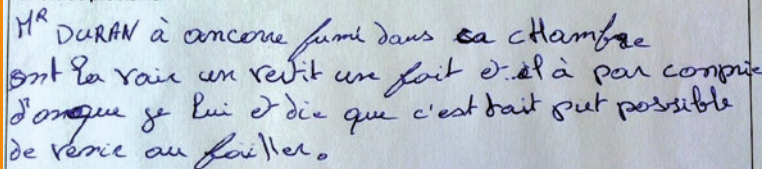 Mᴿ DURAN à ancore fumé dans sa cHambre
ont la vair un vertit une fait et il à pas conprie
d'onque je lui et die que c'est tait put possible
de venie au failler.